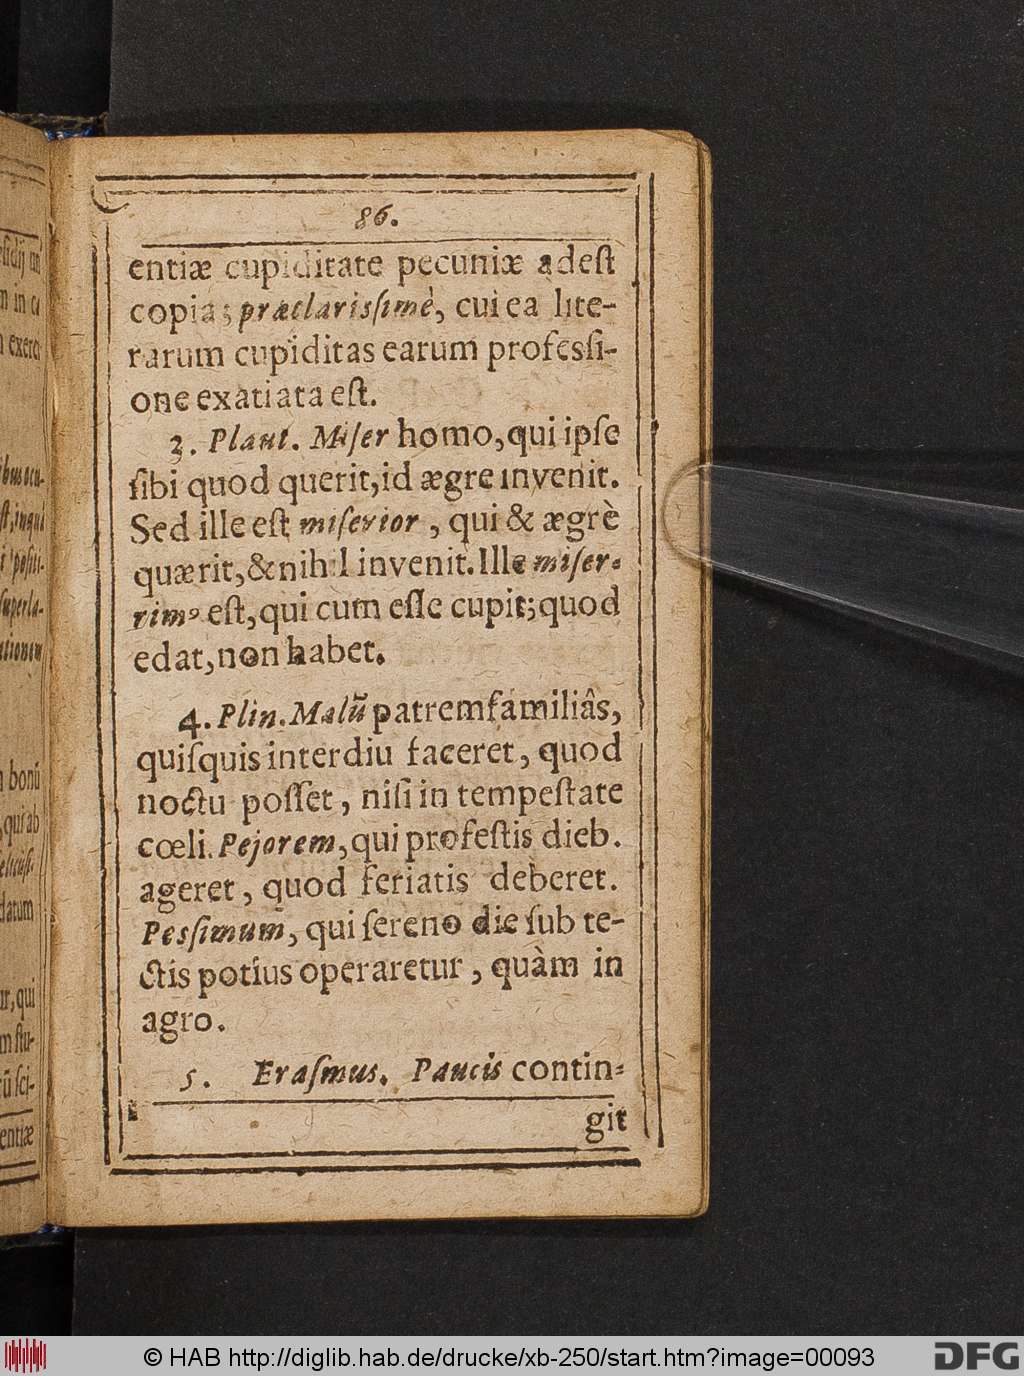 86.
entiæ cupiditate pecuniæ adest
copia; præclarissimè, cui ea lite-
rarum cupiditas earum professi-
one exatiata est.
3. Plaut. Miser homo, qui ipse
sibi quod querit, id ægre invenit.
Sed ille est miserior, qui & ægrè
quærit, & nihil invenit. Ille miser-
rimꝰ est, qui cum esse cupit; quod
edat, non habet.
4. Plin. Malũ patremfamiliâs,
quisquis interdiu faceret, quod
noctu posset, nisi in tempestate
cœli. Pejorem, qui profestis dieb.
ageret, quod feriatis deberet.
Pessimum, qui sereno die sub te-
ctis potius operaretur, quàm in
agro.
5. Erasmus. Paucis contin-
git
entiæ
© HAB http://diglib.hab.de/drucke/xb-250/start.htm?image=00093
DFG